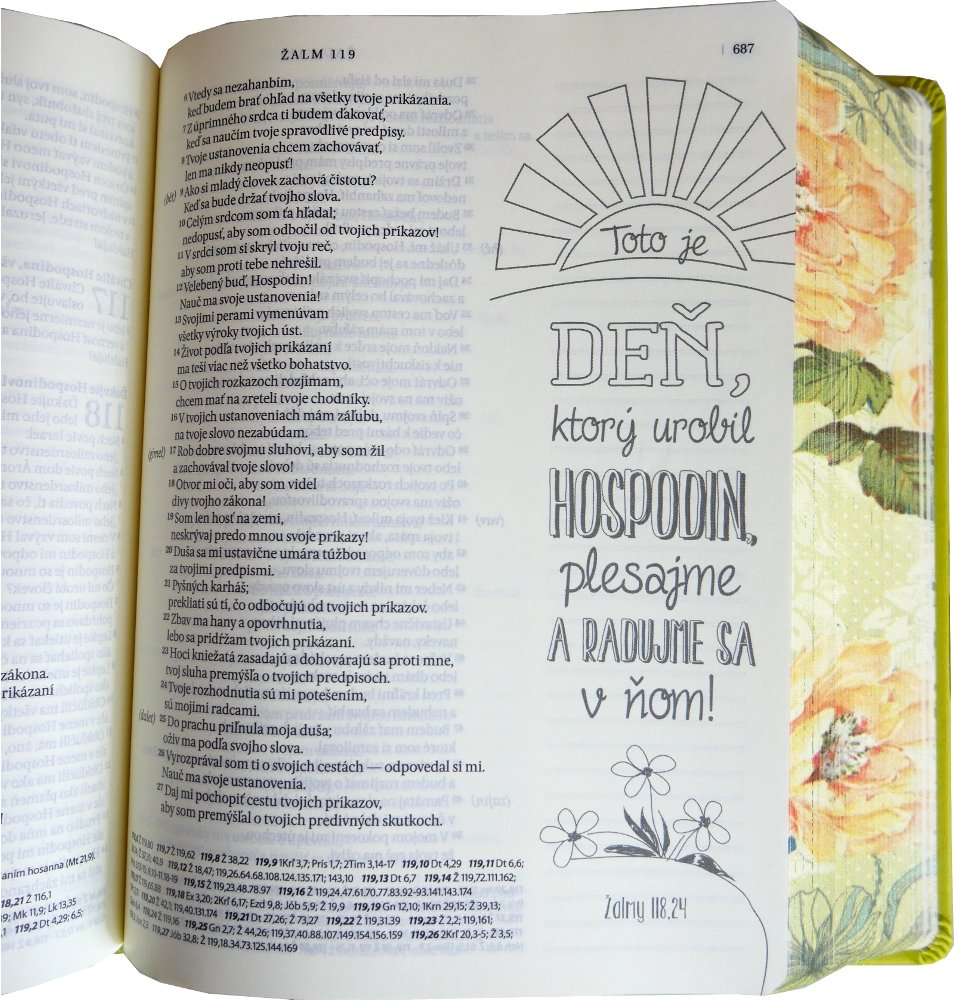 ŽALM 119
687
6 Vtedy sa nezahanbím,
keď budem brať ohľad na všetky tvoje prikázania.
7 Z úprimného srdca ti budem ďakovať,
keď sa naučím tvoje spravodlivé predpisy.
8 Tvoje ustanovenia chcem zachovávať,
len ma nikdy neopusť!
(bét) 9 Ako si mladý človek zachová čistotu?
Keď sa bude držať tvojho slova.
10 Celým srdcom som ťa hľadal;
nedopusť, aby som odbočil od tvojich príkazov!
11 V srdci som si skryl tvoju reč,
aby som proti tebe nehrešil.
12 Velebený buď, Hospodin!
Nauč ma svoje ustanovenia!
13 Svojimi perami vymenúvam
všetky výroky tvojich úst.
14 Život podľa tvojich prikázaní
ma teší viac než všetko bohatstvo.
15 O tvojich rozkazoch rozjímam,
chcem mať na zreteli tvoje chodníky.
16 V tvojich ustanoveniach mám záľubu,
na tvoje slovo nezabúdam.
(gimel) 17 Rob dobre svojmu sluhovi, aby som žil
a zachovával tvoje slovo!
18 Otvor mi oči, aby som videl
divy tvojho zákona!
19 Som len hosť na zemi,
neskrývaj predo mnou svoje príkazy!
20 Duša sa mi ustavične umára túžbou
za tvojimi predpismi.
21 Pyšných karháš;
prekliati sú tí, čo odbočujú od tvojich príkazov.
22 Zbav ma hany a opovrhnutia,
lebo sa pridŕžam tvojich prikázaní.
23 Hoci kniežatá zasadajú a dohovárajú sa proti mne,
tvoj sluha premýšľa o tvojich predpisoch.
24 Tvoje rozhodnutia sú mi potešením,
sú mojimi radcami.
(dalet) 25 Do prachu priľnula moja duša;
oživ ma podľa svojho slova.
26 Vyrozprával som ti o svojich cestách — odpovedal si mi.
Nauč ma svoje ustanovenia.
27 Daj mi pochopiť cestu tvojich príkazov,
aby som premýšľal o tvojich predivných skutkoch.
119,7 Ž 119,62 119,8 Ž 38,22 119,9 1Krľ 3,7; Prís 1,7; 2Tim 3,14-17 119,10 Dt 4,29 119,11 Dt 6,6;
119,12 Ž 18,47; 119,26.64.68.108.124.135.171; 143,10 119,13 Dt 6,7 119,14 Ž 119,72.111.162;
119,15 Ž 119,23.48.78.97 119,16 Ž 119,24.47.61.70.77.83.92-93.141.143.174
119,18 Ex 3,20; 2Krľ 6,17; Ezd 9,8; Jób 5,9; Ž 19,9 119,19 Gn 12,10; 1Krn 29,15; Ž 39,13;
119,40.131.174 119,21 Dt 27,26; Ž 73,27 119,22 Ž 119,31.39 119,23 Ž 2,2; 119,161;
119,25 Gn 2,7; Ž 44,26; 119,37.40.88.107.149.154.156.159 119,26 2Krľ 20,3-5; Ž 3,5;
119,27 Jób 32,8; Ž 119,18.34.73.125.144.169
Toto je
DEŇ,
ktorý urobil
HOSPODIN,
plesajme
A RADUJME SA
v ňom!
Žalmy 118,24
zákona.
rikázaní
aním hosanna (Mt 21,9).
18,21 Ž 116,1
9; Mk 11,9; Lk 13,35
119,2 Dt 4,29; 6,5;